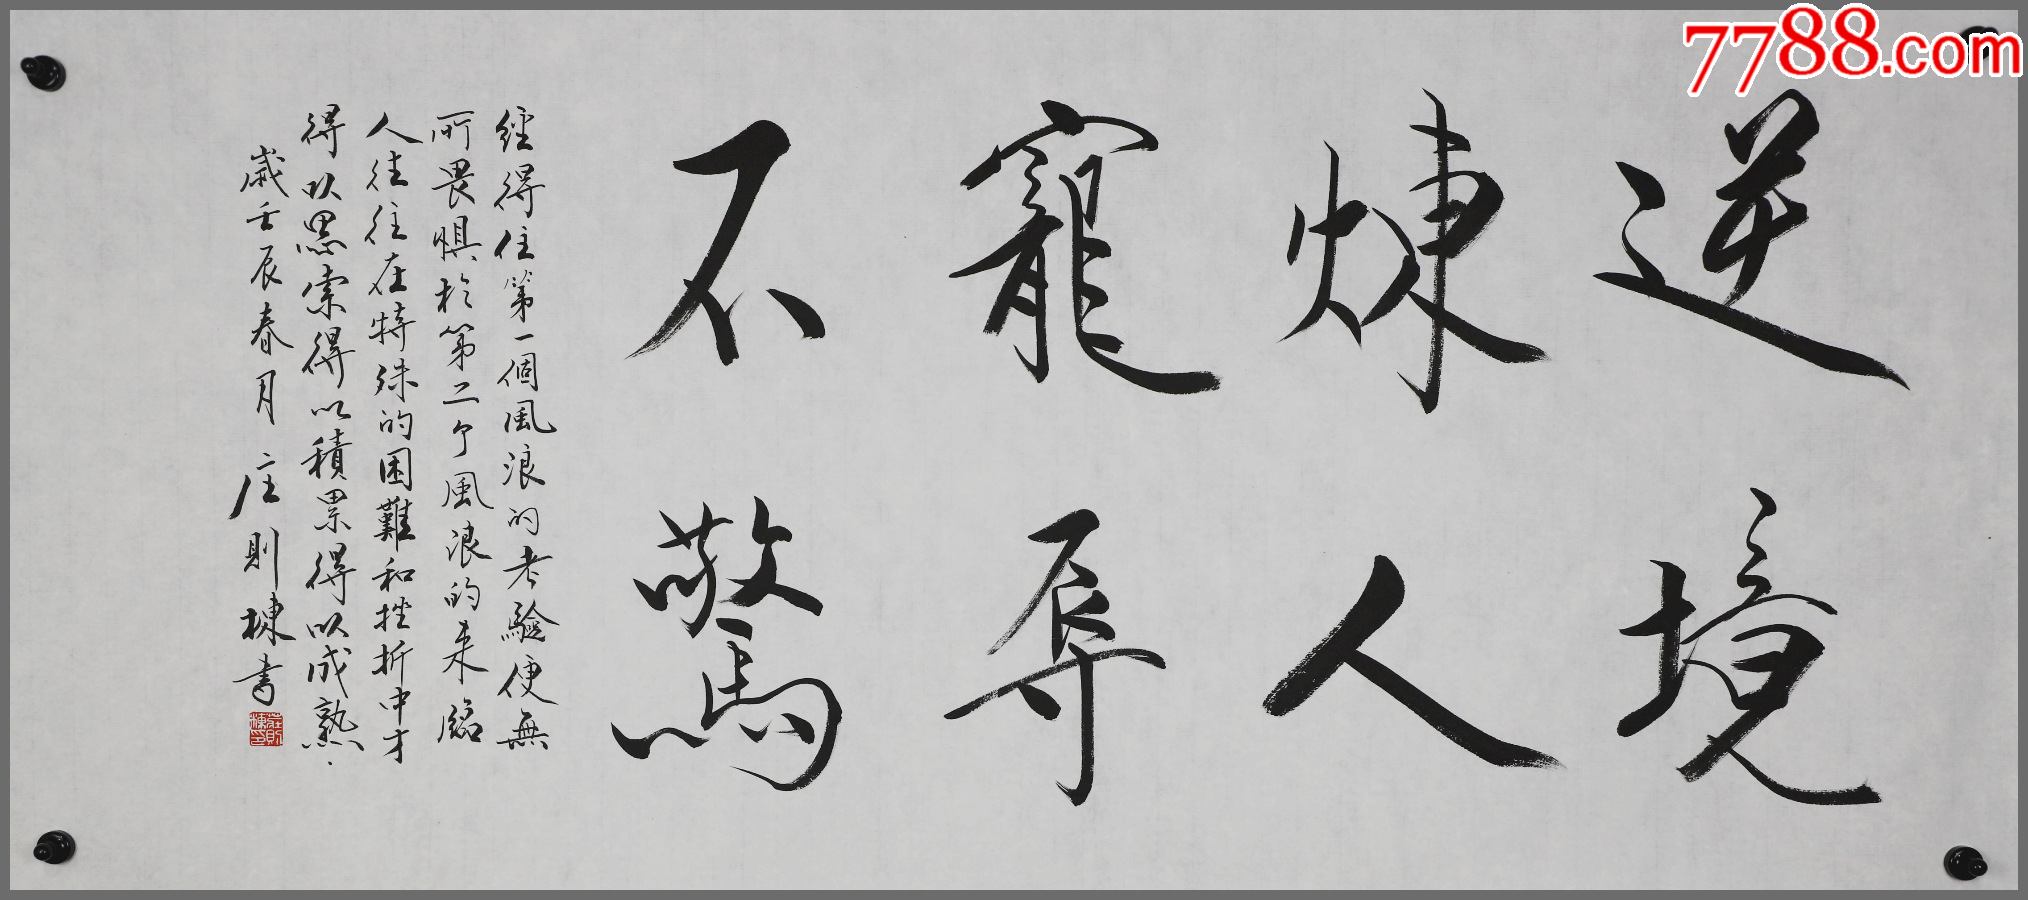 逆境
煉人
寵辱
不驚
經得住第一個風浪的考驗便無
所畏惧於第二个風浪的来臨
人往往在特殊的困難和挫折中才
得以思索得以積累得以成熟
歲壬辰春月庄則棟書
莊則棟印
7788.com